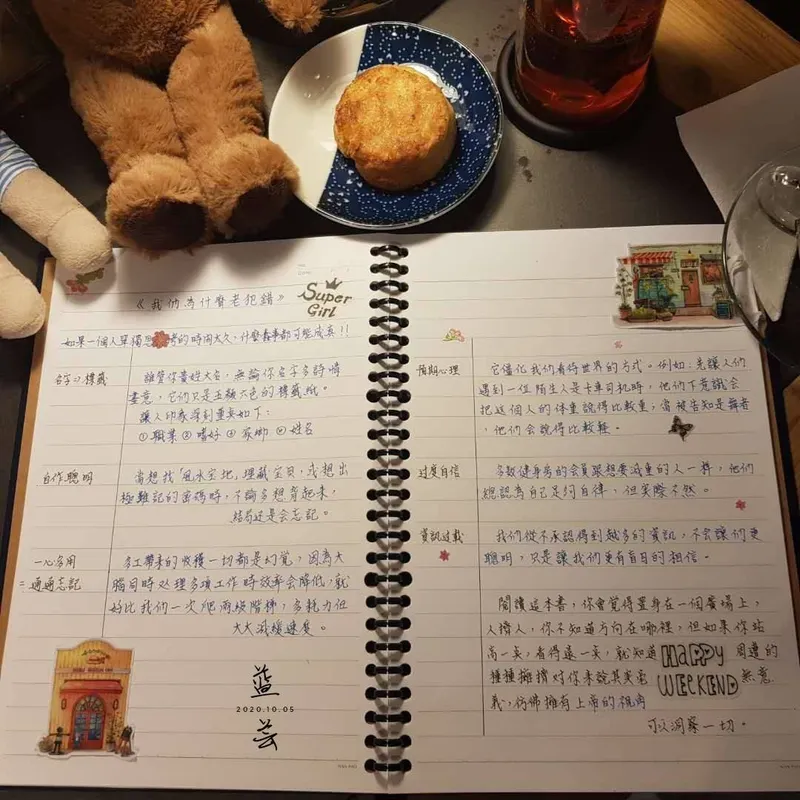 《我們為什麼老犯錯》
Super
Girl
如果一個人單獨思考的時間太久，什麼蠢事都可能成真!!
名字⇒標籤
誰管你貴姓大名，無論你名字多詩情
畫意，它們只是五顏六色的標籤紙。
讓人印象深刻重要如下：
①職業②嗜好③家鄉④姓名
自作聰明
當想找「風水宝地」埋藏宝貝，或想出
極難記的密碼時，不論多想背起來，
結局还是会忘記。
一心多用
=通通忘記
多工帶來的收穫一切都是幻覺，因為大
腦同時処理多項工作時效率会降低，就
好比我們一次爬兩級階梯，多耗力但
大大減緩速度。
藍
2020.10.05
芸
預期心理
它僵化我們看待世界的方式。例如：先讓人們
遇到一位陌生人是卡車司机時，他們下意識会
把这個人的体重說得比較重；當被告知是舞者
，他們会說得比較輕。
过度自信
多數健身房的会員跟想要減重的人一樣，他們
總認為自己足夠自律，但实際不然。
資訊过載
我們從不承認得到越多的資訊，不会讓們更
聰明，只是讓我們更有盲目的相信。
閱讀這本書，你會覺得置身在一個廣場上，
人擠人，你不知道方向在哪裡，但如果你站
高一矣，看得遠一矣，就知道 周邊的
種種擁擠对你來說其实毫 無意
Happy
WEEKEND
義，彷彿擁有上帝的視角
可以洞察一切。